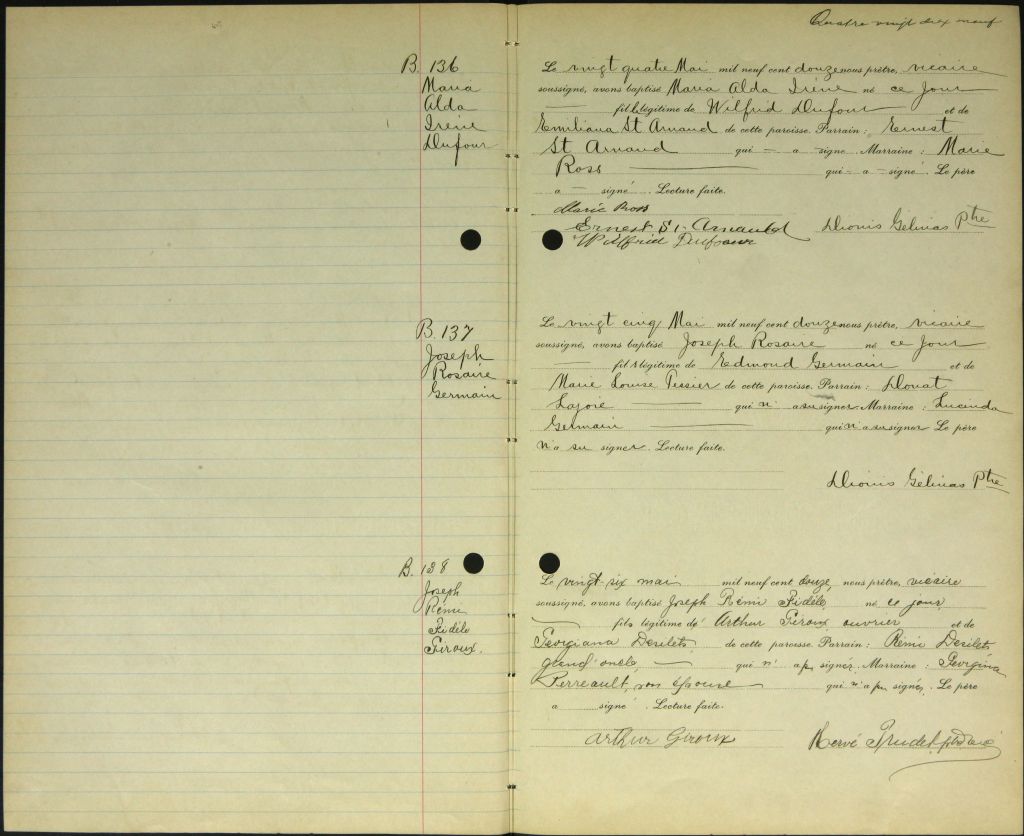 Quatre vingt dix neuf
B. 136
Maria
Alda
Irène
Dufour
Le vingt quatre Mai mil neuf cent douze nous prêtre, vicaire
soussigné, avons baptisé Maria Alda Irène né ce jour
fille légitime de Wilfrid Dufour et de
Emiliana St Arnaud de cette paroisse. Parrain : Ernest
St Arnaud qui — a — signé. Marraine : Marie
Ross qui — a — signé. Le père
a — signé. Lecture faite.
Marie Ross
Ernest St-Arnauld
Wilfrid Dufour
Dionis Gélinas Ptre
B. 137
Joseph
Rosaire
Germain
Le vingt cinq Mai mil neuf cent douze nous prêtre, vicaire
soussigné, avons baptisé Joseph Rosaire né ce jour
fils légitime de Edmond Germain et de
Marie Louise Tessier de cette paroisse. Parrain : Donat
Lajoie qui n' a su signer. Marraine : Lucinda
Germain qui n'a su signer Le père
n'a su signer. Lecture faite.
Dionis Gélinas Ptre
B. 138
Joseph
Rémi
Fidèle
Giroux.
Le vingt-six mai mil neuf cent douze, nous prêtre, vicaire
soussigné, avons baptisé Joseph Rémi Fidèle né ce jour
fils légitime de Arthur Giroux ouvrier et de
Georgiana Desilets, de cette paroisse Parrain : Rémi Desilets
grand'oncle, — qui n' a pu signer. Marraine : Georgina
Perreault, son épouse qui n'a pu signer. Le père
a signé. Lecture faite.
Arthur Giroux
Hervé Trudel ptre